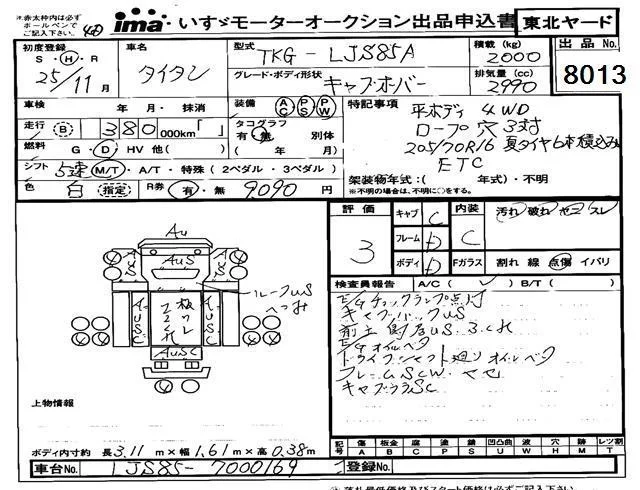 ※赤太枠内は必ず
ボールペンで
ご記入下さい。
ima いすゞモーターオークション出品申込書 東北ヤード
初度登録 車名 型式 TKG-LJS85A 積載(kg) 2000 出品No.
S・H・R 25年11月 タイタン グレード・ボディ形状 キャブオーバー 排気量(cc) 2990 8013
車検 年 月・抹消 装備 AC PS PW 特記事項 平ボディ 4WD
走行 B 380000km「 」 タコグラフ 有・無 別体 ロープ穴3対
燃料 G・D・HV 他( ) ( 年 月) 205/70R16 夏タイヤ6本積込み
シフト 5速 M/T・A/T・特殊(2ペダル・3ペダル) ETC
色 白(指定) R券 有・無 9090円 架装物年式:( 年式)・不明
※不明の場合は、不明に○をする。
評価 3 キャブ C 内装 C 汚れ 破れ ヤニ スレ
フレーム D
ボディ D Fガラス 割れ 線 点傷 イバリ
検査員報告 A/C( ) B/T( )
E/Gチェックランプ点灯
キャブバックUS
E/Gオイルベタ
ドライブシャフト廻りオイルベタ
AU
AUS
ルーフUS
へこみ
AUSC
上物情報
ボディ内寸約 長3.11m×幅1.61m×高0.38m
記号 傷 板金 腐 塗 錆 凹凸曲 波 穴 跡 レツ割
A B C P S U W H M T
車台No. LJS85-7000169 登録No.